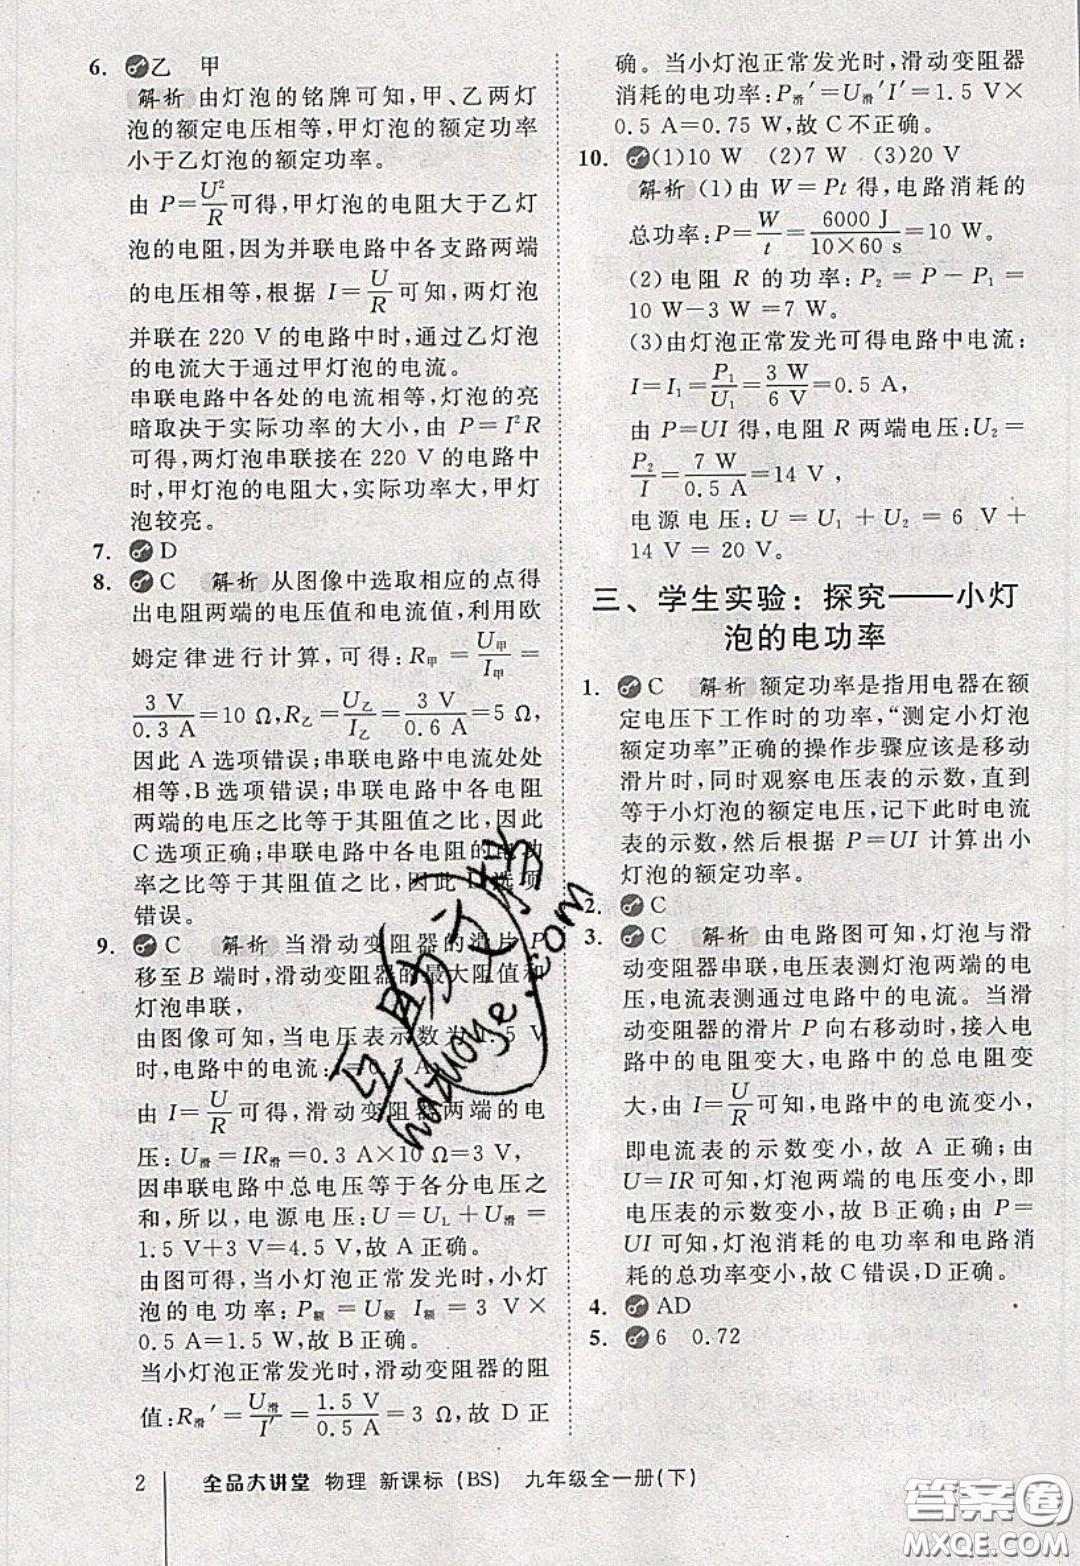 6. 乙 甲
解析 由灯泡的铭牌可知,甲、乙两灯
泡的额定电压相等,甲灯泡的额定功率
小于乙灯泡的额定功率。
由 P=U²/R 可得,甲灯泡的电阻大于乙灯
泡的电阻,因为并联电路中各支路两端
的电压相等,根据 I=U/R 可知,两灯泡
并联在 220 V 的电路中时,通过乙灯泡
的电流大于通过甲灯泡的电流。
串联电路中各处的电流相等,灯泡的亮
暗取决于实际功率的大小,由 P=I²R
可得,两灯泡串联接在 220 V 的电路中
时,甲灯泡的电阻大,实际功率大,甲灯
泡较亮。
7. D
8. C 解析 从图像中选取相应的点得
出电阻两端的电压值和电流值,利用欧
姆定律进行计算,可得:R甲=U甲/I甲=
3 V/0.3 A=10 Ω,R乙=U乙/I乙=3 V/0.6 A=5 Ω,
因此 A 选项错误;串联电路中电流处处
相等,B 选项错误;串联电路中各电阻
两端的电压之比等于其阻值之比,因此
C 选项正确;串联电路中各电阻的电功
率之比等于其阻值之比,因此 D 选项
错误。
9. C 解析 当滑动变阻器的滑片 P
移至 B 端时,滑动变阻器的最大阻值和
灯泡串联,
由图像可知,当电压表示数为 1.5 V
时,电路中的电流:I=0.3 A,
由 I=U/R 可得,滑动变阻器两端的电
压:U滑=IR滑=0.3 A×10 Ω=3 V,
因串联电路中总电压等于各分电压之
和,所以,电源电压:U=UL+U滑=
1.5 V+3 V=4.5 V,故 A 正确。
由图可得,当小灯泡正常发光时,小灯
泡的电功率:P额=U额 I额=3 V×
0.5 A=1.5 W,故 B 正确。
当小灯泡正常发光时,滑动变阻器的阻
值:R滑′=U滑/I′=1.5 V/0.5 A=3 Ω,故 D 正
确。当小灯泡正常发光时,滑动变阻器
消耗的电功率:P滑′=U滑′I′=1.5 V×
0.5 A=0.75 W,故 C 不正确。
10. (1)10 W (2)7 W (3)20 V
解析 (1)由 W=Pt 得,电路消耗的
总功率:P=W/t=6000 J/10×60 s=10 W。
(2)电阻 R 的功率:P₂=P-P₁=
10 W-3 W=7 W。
(3)由灯泡正常发光可得电路中电流:
I=I₁=P₁/U₁=3 W/6 V=0.5 A,
由 P=UI 得,电阻 R 两端电压:U₂=
P₂/I=7 W/0.5 A=14 V,
电源电压:U=U₁+U₂=6 V+
14 V=20 V。
三、学生实验:探究——小灯
泡的电功率
1. C 解析 额定功率是指用电器在额
定电压下工作时的功率,“测定小灯泡
额定功率”正确的操作步骤应该是移动
滑片时,同时观察电压表的示数,直到
等于小灯泡的额定电压,记下此时电流
表的示数,然后根据 P=UI 计算出小
灯泡的额定功率。
2. C
3. C 解析 由电路图可知,灯泡与滑
动变阻器串联,电压表测灯泡两端的电
压,电流表测通过电路中的电流。当滑
动变阻器的滑片 P 向右移动时,接入电
路中的电阻变大,电路中的总电阻变
大,由 I=U/R 可知,电路中的电流变小,
即电流表的示数变小,故 A 正确;由
U=IR 可知,灯泡两端的电压变小,即
电压表的示数变小,故 B 正确;由 P=
UI 可知,灯泡消耗的电功率和电路消
耗的总功率变小,故 C 错误,D 正确。
4. AD
5. 6 0.72
2 全品大讲堂 物理 新课标(BS) 九年级全一册(下)
答案圈
MXQE.COM